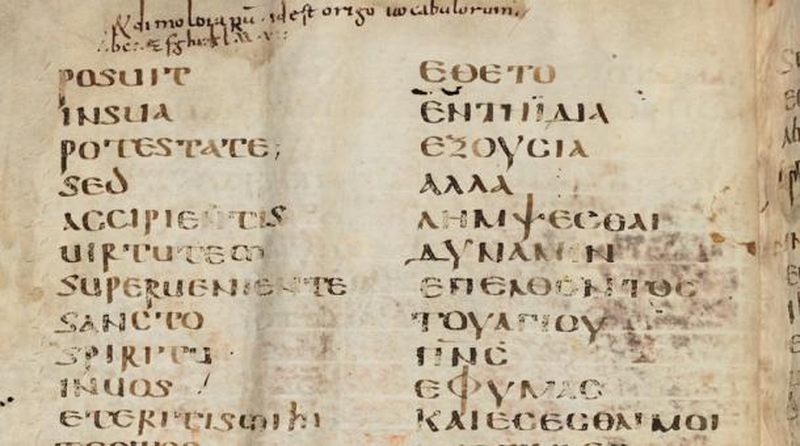 idest origo uocabulorum.
POSUIT ΕΘΕΤΟ
INSUA ΕΝΤΗΪΔΙΑ
POTESTATE; ΕΞΟΥϹΙΑ
SED ΑΛΛΑ
ACCIPIENTIS ΛΗΜΨΕϹΘΑΙ
UIRTUTEM ΔΥΝΑΜΙΝ
SUPERUENIENTE ΕΠΕΛΘΟΝΤΟϹ
SANCTO ΤΟΥΑΓΙΟΥ
SPIRITU ΠΝϹ
INUOS ΕΦΥΜΑϹ
ETERITISMIHI ΚΑΙΕϹΕϹΘΑΙΜΟΙ